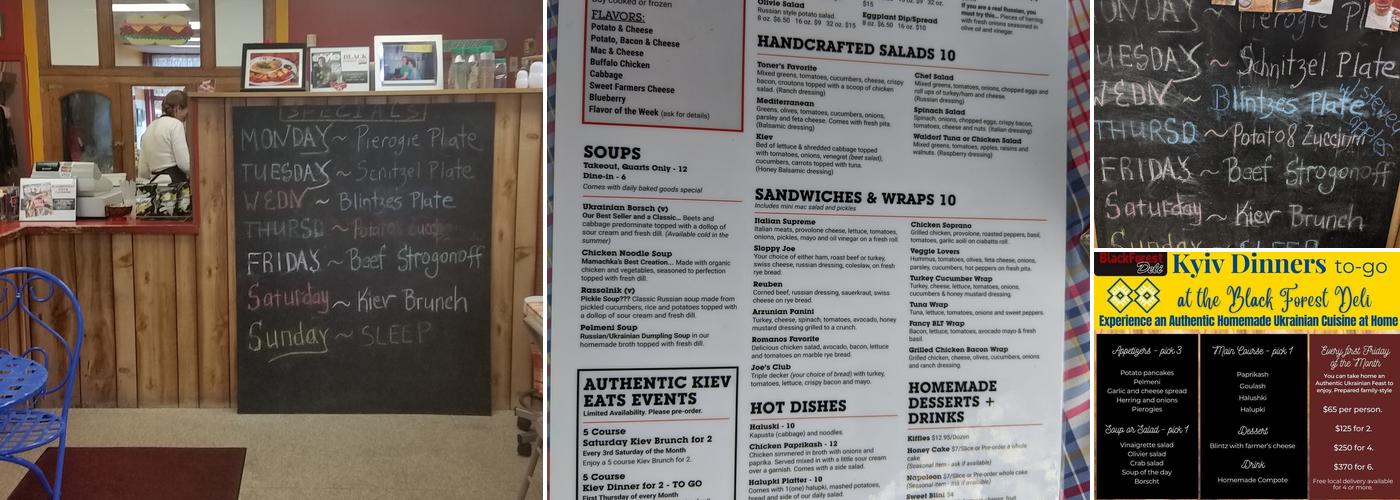 SPECIALS
MONDAY ~ Pierogie Plate
TUESDAY ~ Scnitzel Plate
WEDN ~ Blintzes Plate
THURSD ~ Potato &
FRIDAY ~ Beef Strogonoff
Saturday ~ Kiev Brunch
Sunday ~ SLEEP
Buy cooked or frozen
FLAVORS:
Potato & Cheese
Potato, Bacon & Cheese
Mac & Cheese
Buffalo Chicken
Cabbage
Sweet Farmers Cheese
Blueberry
Flavor of the Week (ask for details)
SOUPS
Takeout, Quarts Only - 12
Dine-in - 6
Comes with daily baked goods special
Ukrainian Borsch (v)
Our Best Seller and a Classic... Beets and
cabbage predominate topped with a dollop of
sour cream and fresh dill. (Available cold in the
summer)
Chicken Noodle Soup
Mamachka's Best Creation... Made with organic
chicken and vegetables, seasoned to perfection
topped with fresh dill.
Rassolnik (v)
Pickle Soup??? Classic Russian soup made from
pickled cucumbers, rice and potatoes topped with
a dollop of sour cream and fresh dill.
Pelmeni Soup
Russian/Ukrainian Dumpling Soup in our
homemade broth topped with fresh dill.
AUTHENTIC KIEV
EATS EVENTS
Limited Availability. Please pre-order.
5 Course
Saturday Kiev Brunch for 2
Every 3rd Saturday of the Month
Enjoy a 5 course Kiev Brunch for 2.
5 Course
Kiev Dinner for 2 - TO GO
First Thursday of every Month
Olivie Salad
Russian style potato salad.
8 oz. $6.50 16 oz. $9 32 oz. $15
$15
Eggplant Dip/Spread
8 oz. $6.50 16 oz. $10
If you are a real Russian, you
must try this... Pieces of herring
with fresh onions seasoned
with oil and vinegar.
HANDCRAFTED SALADS 10
Toner's Favorite
Mixed greens, tomatoes, cucumbers, cheese, crispy
bacon, croutons topped with a scoop of chicken
salad. (Ranch dressing)
Mediterranean
Greens, olives, tomatoes, cucumbers, onions,
parsley and feta cheese. Comes with fresh pita.
(Balsamic dressing)
Kiev
Bed of lettuce & shredded cabbage topped
with tomatoes, onions, venegret (beet salad),
cucumbers, carrots topped with tuna.
(Honey Balsamic dressing)
Chef Salad
Mixed greens, tomatoes, onions, chopped eggs and
roll ups of turkey/ham and cheese.
(Russian dressing)
Spinach Salad
Spinach, onions, chopped eggs, crispy bacon,
tomatoes, cheese and nuts. (Italian dressing)
Waldorf Tuna or Chicken Salad
Mixed greens, tomatoes, apples, raisins and
walnuts. (Raspberry dressing)
SANDWICHES & WRAPS 10
Includes mini mac salad and pickles
Italian Supreme
Italian meats, provolone cheese, lettuce, tomatoes,
onions, pickles, mayo and oil vinegar on a fresh roll.
Sloppy Joe
Your choice of either ham, roast beef or turkey,
swiss cheese, russian dressing, coleslaw, on fresh
rye bread.
Reuben
Corned beef, russian dressing, sauerkraut, swiss
cheese on rye bread.
Arzunian Panini
Turkey, cheese, spinach, tomatoes, avocado, honey
mustard dressing grilled to a crunch.
Romanos Favorite
Delicious chicken salad, avocado, bacon, lettuce
and tomatoes on marble rye bread.
Joe's Club
Triple decker (your choice of bread) with turkey,
tomatoes, lettuce, crispy bacon and mayo.
Chicken Soprano
Grilled chicken, provolone, roasted peppers, basil,
tomatoes, garlic aoili on ciabatta roll.
Veggie Lovers
Hummus, tomatoes, olives, feta cheese, onions,
parsley, cucumbers, hot peppers on fresh pita.
Turkey Cucumber Wrap
Turkey, cheese, lettuce, tomatoes, onions,
cucumbers & honey mustard dressing.
Tuna Wrap
Tuna, lettuce, tomatoes, onions and sweet peppers.
Fancy BLT Wrap
Bacon, lettuce, tomatoes, avocado mayo & fresh
basil.
Grilled Chicken Bacon Wrap
Grilled chicken, cheese, olives, cucumbers, onions
and ranch dressing.
HOT DISHES
Haluski - 10
Kapusta (cabbage) and noodles.
Chicken Paprikash - 12
Chicken simmered in broth with onions and
paprika. Served mixed in with a little sour cream
over a garnish. Comes with a side salad.
Halupki Platter - 10
Comes with 1(one) halupki, mashed potatoes,
bread and side of our daily salad.
HOMEMADE
DESSERTS +
DRINKS
Kiffles $12.95/Dozen
Honey Cake $7/Slice or Pre-order a whole
cake
(Seasonal item - ask if available)
Napoleon $7/Slice or Pre-order whole cake
(Seasonal item - ask if available)
Sweet Blini $4
MONDAY ~ Pierogie Pl
TUESDAY ~ Schnitzel Plate
WEDN ~ Blintzes Plate
THURSD ~ Potato & Zucchini
FRIDAY ~ Beef Strogonoff
Saturday ~ Kiev Brunch
Sunday ~ SLEEP
BlackForest
Deli
Kyiv Dinners to-go
at the Black Forest Deli
Experience an Authentic Homemade Ukrainian Cuisine at Home
Appetizers - pick 3
Potato pancakes
Pelmeni
Garlic and cheese spread
Herring and onions
Pierogies
Soup or Salad - pick 1
Vinaigrette salad
Olivier salad
Crab salad
Soup of the day
Borscht
Main Course - pick 1
Paprikash
Goulash
Halushki
Halupki
Dessert
Blintz with farmer's cheese
Drink
Homemade Compote
Every first Friday
of the Month
You can take home an
Authentic Ukrainian Feast to
enjoy. Prepared family-style
$65 per person.
$125 for 2.
$250 for 4.
$370 for 6.
Free local delivery available
for 4 or more.